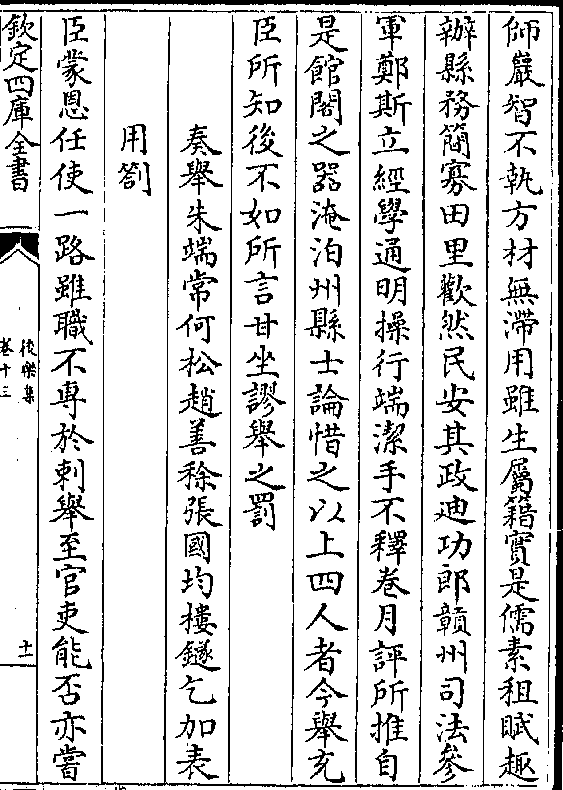 師嚴智不執方材無滯用雖生屬籍實是儒素租賦趣
辦縣務簡寡田里歡然民安其政迪功郎贛州司法參
軍鄭斯立經學通明操行端潔手不釋卷月評所推自
是館閣之器淹泊州縣士論惜之以上四人者今舉充
臣所知後不如所言甘坐謬舉之罰
奏舉朱端常何松趙善稌張國均樓鐩乞加表
用劄
臣蒙恩任使一路雖職不專於刺舉至官吏能否亦嘗
欽定四庫全書
後樂集
卷十三
十一